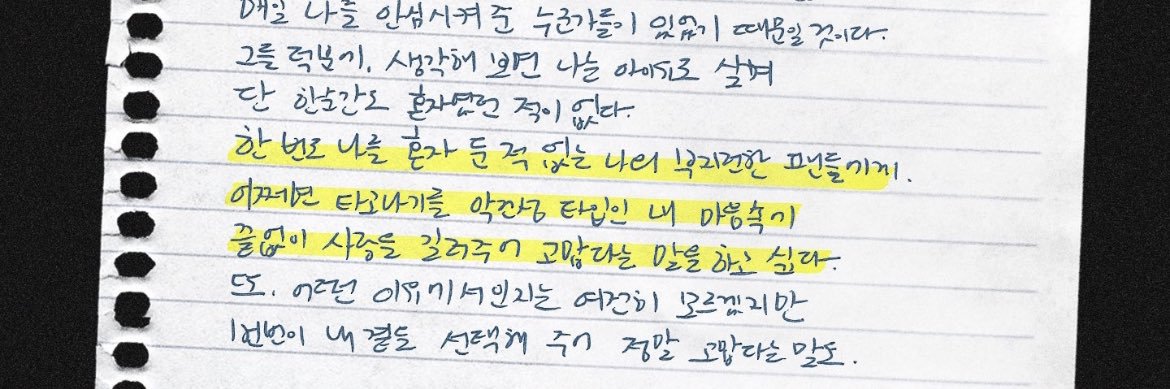 매일 나를 안심시켜 준 누군가들이 있었기 때문일 것이다.
그를 덕분에, 생각해 보면 나는 아이dol로 살며
단 한순간도 혼자였던 적이 없다.
한 번도 나를 혼자 둔 적 없는 나의 부지런한 팬들에게.
어쩌면 타고나기를 약간 타입인 내 마음속에
끝없이 사랑을 길러주어 고맙다는 말을 하고 싶다.
또, 어떤 이유에서인지는 여전히 모르겠지만
매번 내 곁을 선택해 주어 정말 고맙다는 말도.